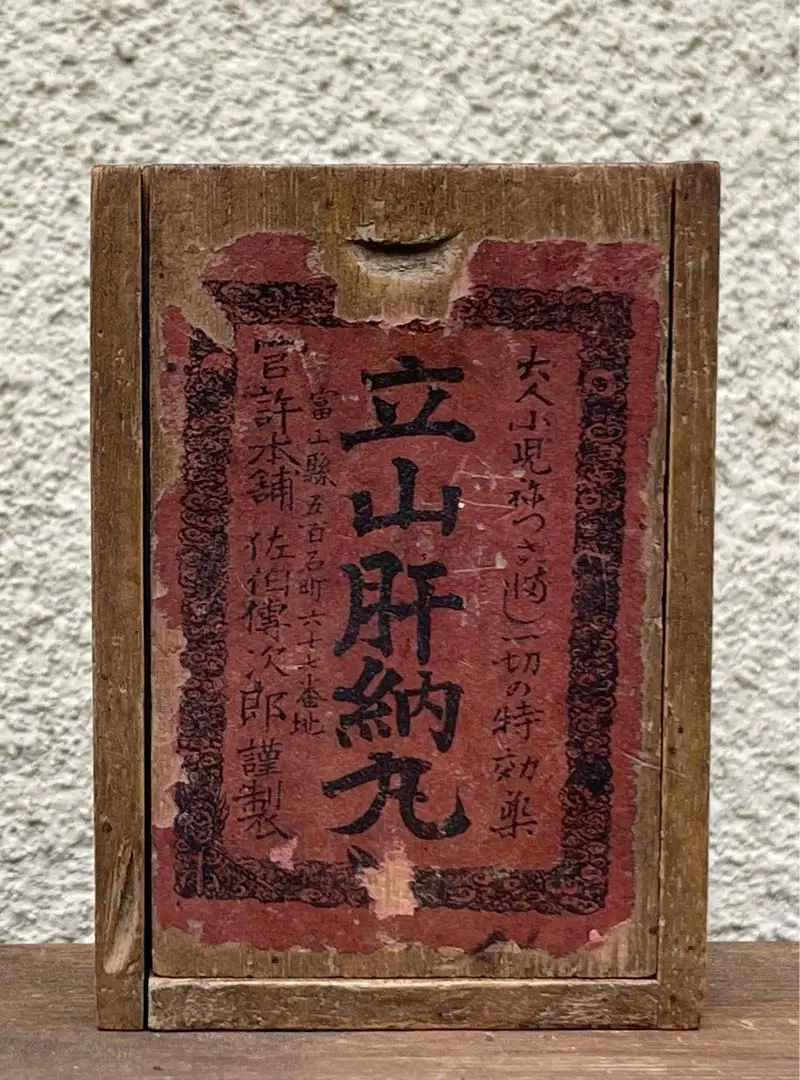 大人小児祢つさ満し一切の特効薬
立山肝納丸
富山縣五百石町六十七番地
官許本舗 佐伯傳次郎 謹製